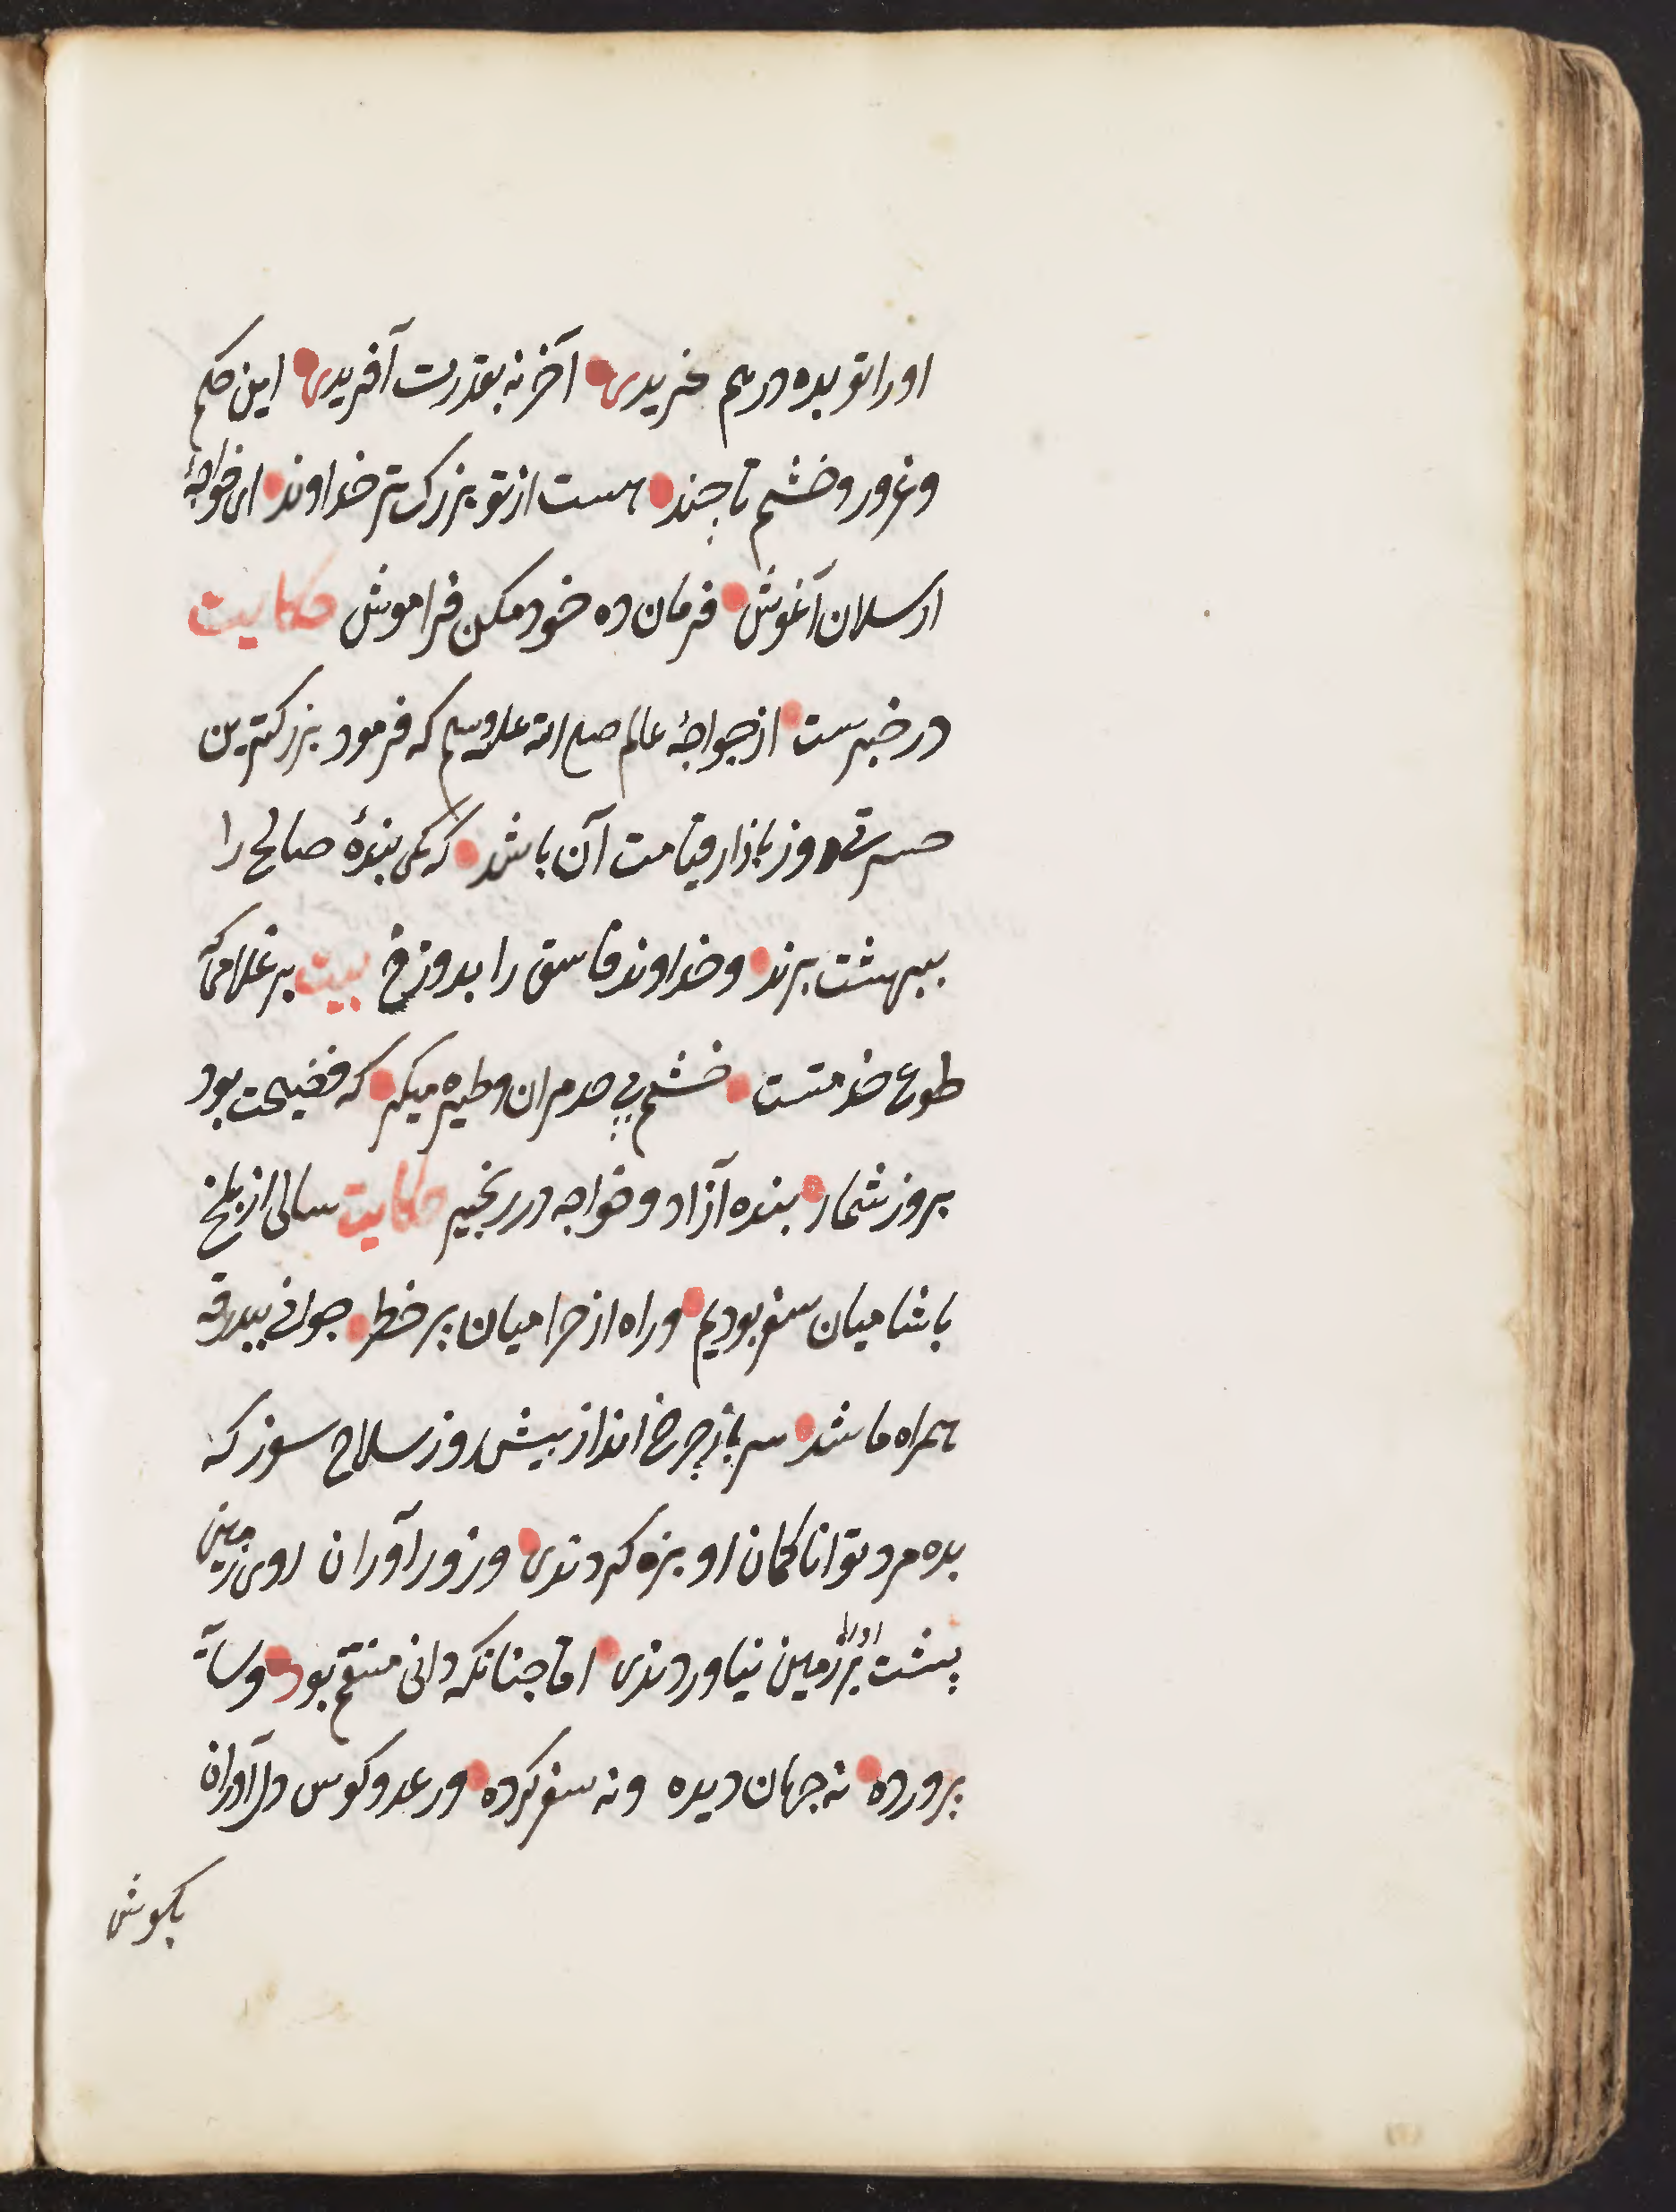 اورا تو بده درم خریدی آخر نه بقدرت آفریدی این حکم
وغرور وخشم تا چند هست از تو بزرگ تر خداوند ای خواجهٔ
ارسلان آغوش فرمان ده خود مکن فراموش حکایت
در خبرست از خواجهٔ عالم صلی الله علیه وسلم که فرمود بزرکترین
حسرتی روز بازار قیامت آن باشد که یکی بندهٔ صالح را
ببهشت برند وخداوند فاسق را بدوزخ بیت بر غلامی که
طوع خدمتست خشم بی حد مران وطیره مکیر که فضیحت بود
بروز شمار بنده آزاد وخواجه در زنجیر حکایت سالی از بلخ
با شامیان سفر بودیم وراه از حرامیان پر خطر جوانی ببدرقه
همراه ما شد سپرباز چرخ انداز بیش روز سلاح سوز که
بده مرد توانا کمان او بزه کردندی وزور آوران روی زمین
پشت او را بر زمین نیاوردندی اما چنانکه دانی متنعم بود وسایه
پرورده نه جهان دیده ونه سفر کرده ورعد وکوس دلاوران
بکوش